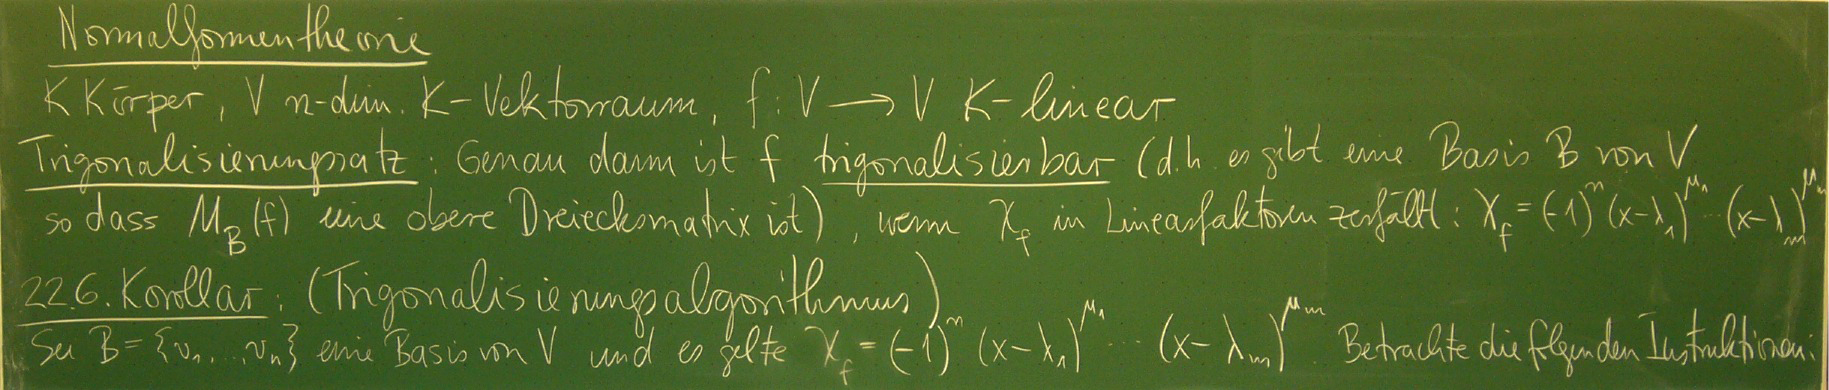 Normalformentheorie
K Körper, V n-dim. K-Vektorraum, f: V → V K-linear
Trigonalisierungssatz: Genau dann ist f trigonalisierbar (d.h. es gibt eine Basis B von V
so dass M_B(f) eine obere Dreiecksmatrix ist), wenn χ_f in Linearfaktoren zerfällt: χ_f = (-1)^n (x-λ_1)^μ_1 ... (x-λ_m)^μ_m
22.6. Korollar: (Trigonalisierungsalgorithmus)
Sei B = {v_1, ..., v_n} eine Basis von V und es gelte χ_f = (-1)^n (x-λ_1)^μ_1 ... (x-λ_m)^μ_m Betrachte die folgenden Instruktionen: